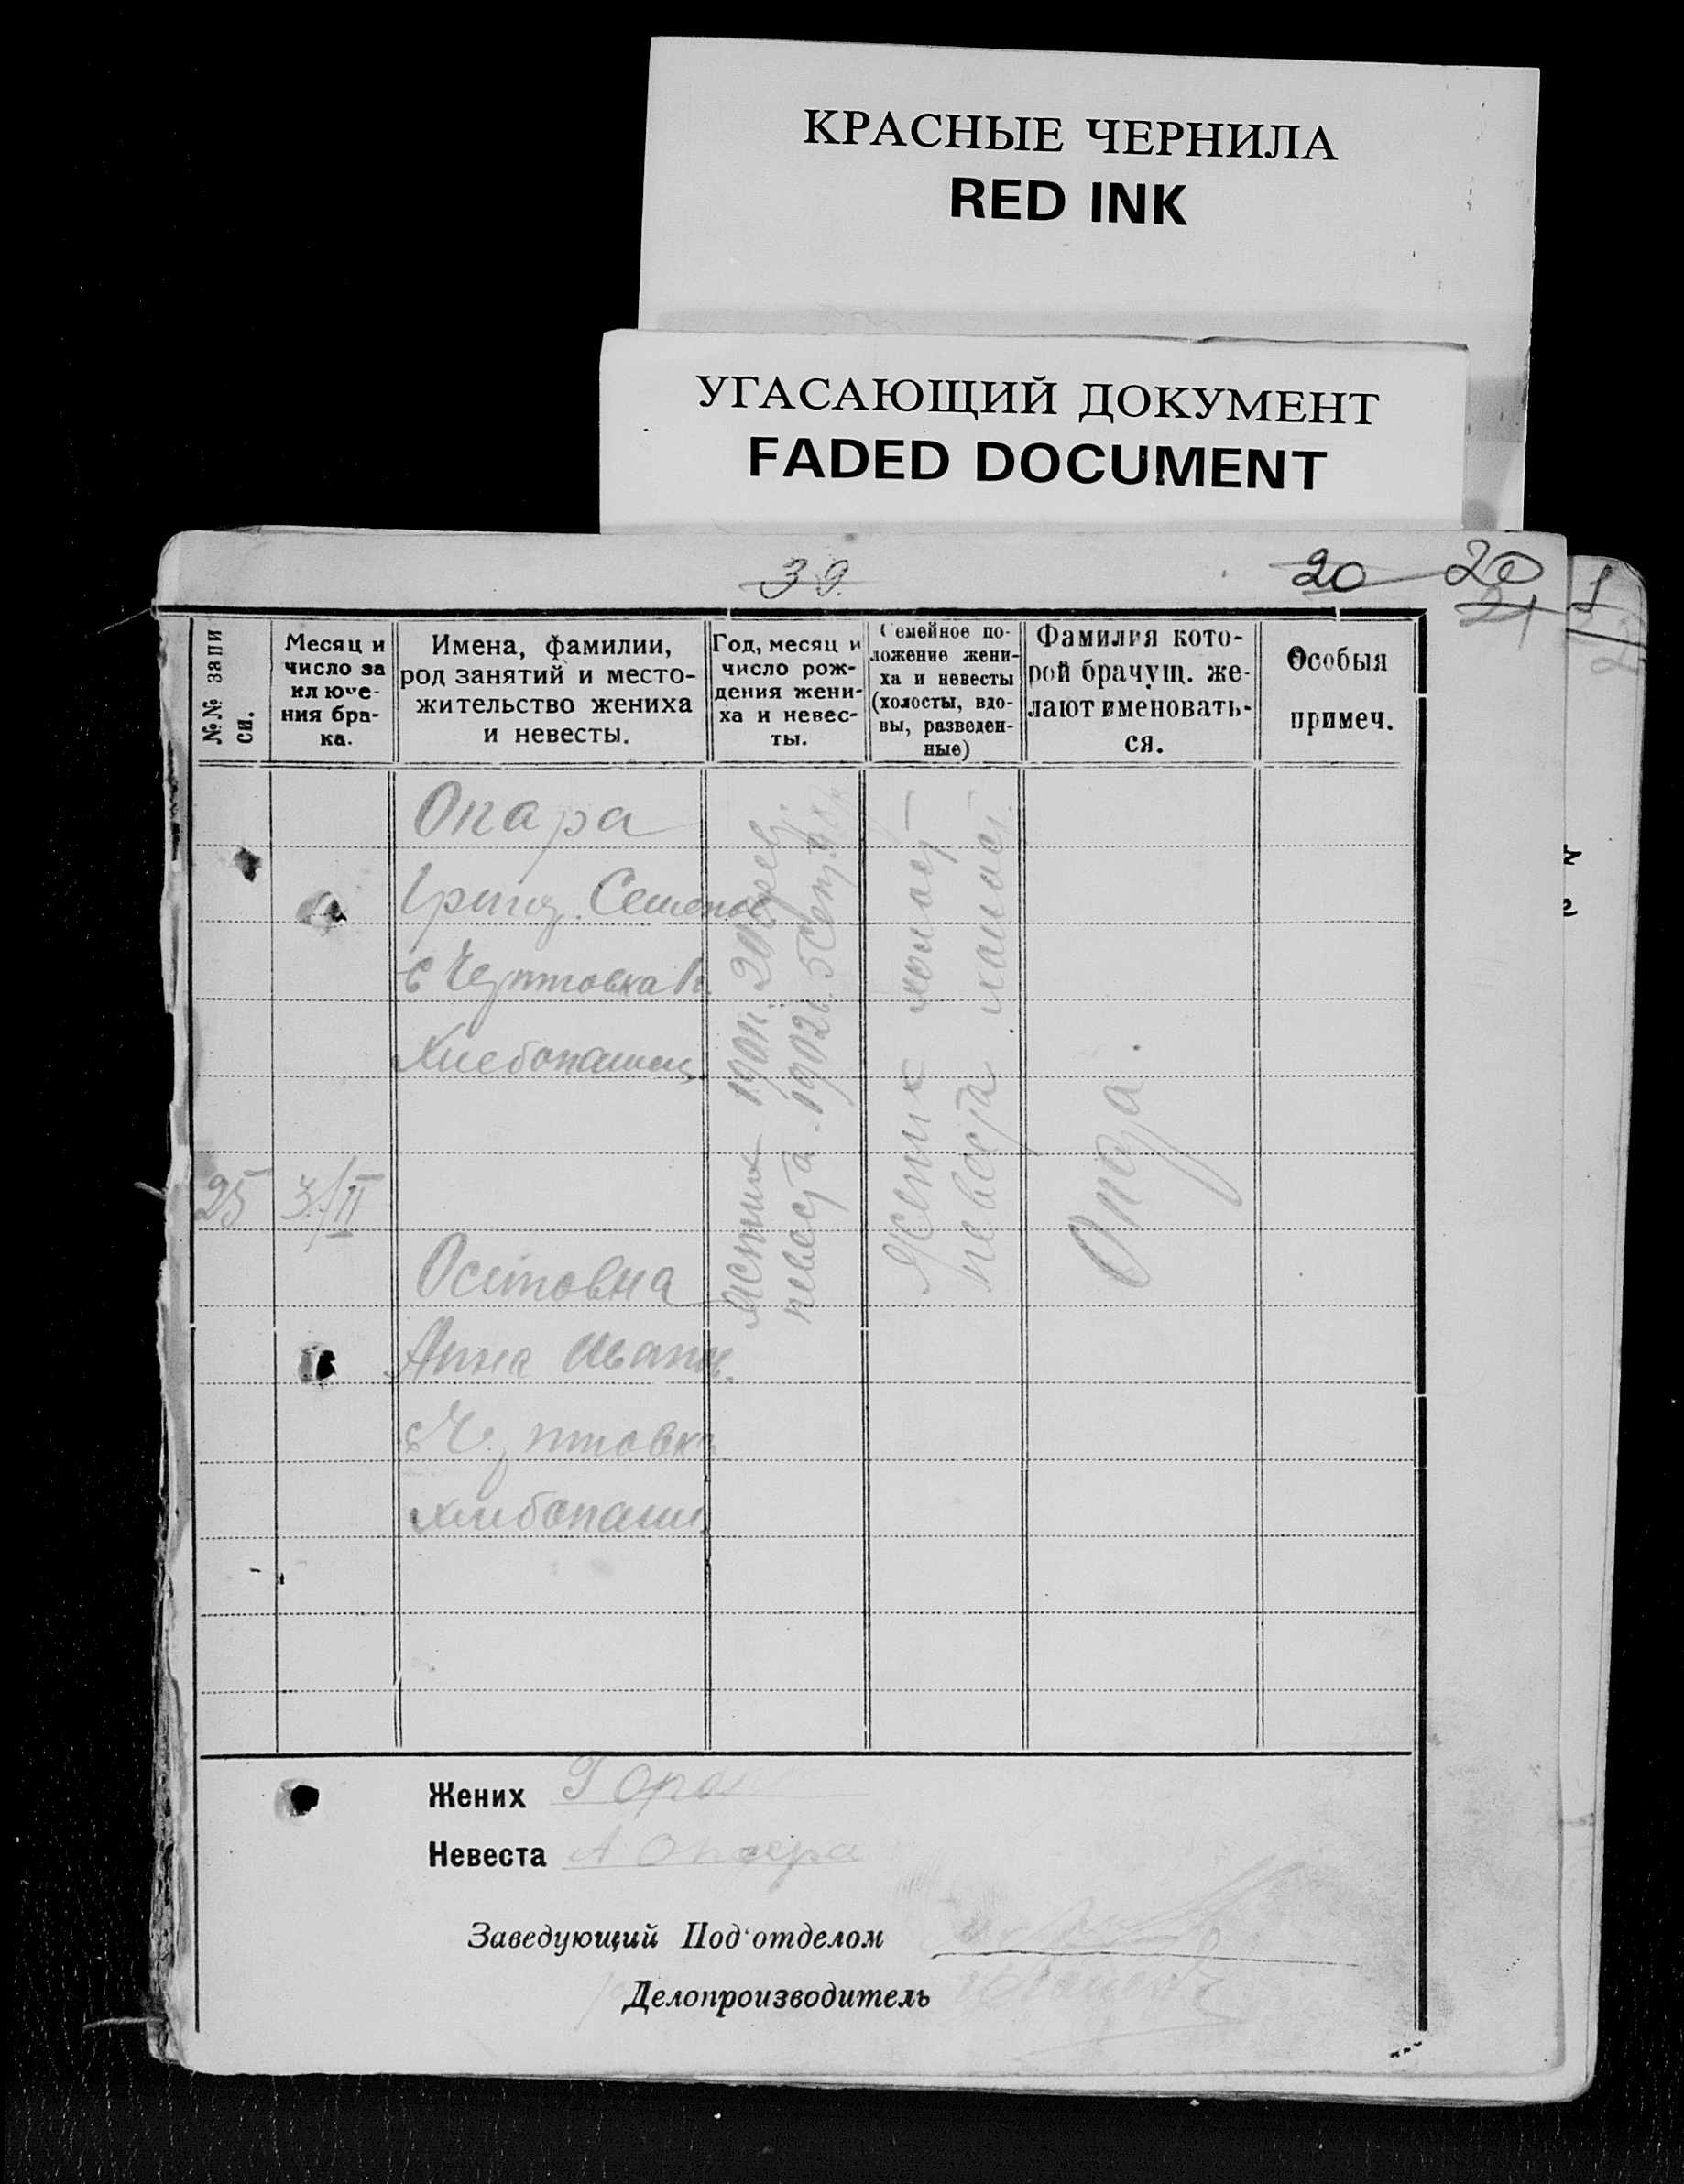 КРАСНЫЕ ЧЕРНИЛА
RED INK
УГАСАЮЩИЙ ДОКУМЕНТ
FADED DOCUMENT
39.
20 20
21
№№ запи
си.
Месяц и
число за
ключе-
ния бра-
ка.
Имена, фамилии,
род занятий и место-
жительство жениха
и невесты.
Год, месяц и
число рож-
дения жени-
ха и невес-
ты.
Семейное по-
ложение жени-
ха и невесты
(холосты, вдо-
вы, разведен-
ные)
Фамилия кото-
рой брачущ. же-
лают именовать-
ся.
Особыя
примеч.
25
3/II
Опара
Григ. Семенов
с
Хлебопашец
Анна Иванов.
с
хлебопаш.
Жених 1901г. 20
невеста 1902г. 5 Сент.
Жених холост
невеста
Опара.
Жених Г Опара
Невеста А Опара
Заведующий Под'отделом
Делопроизводитель